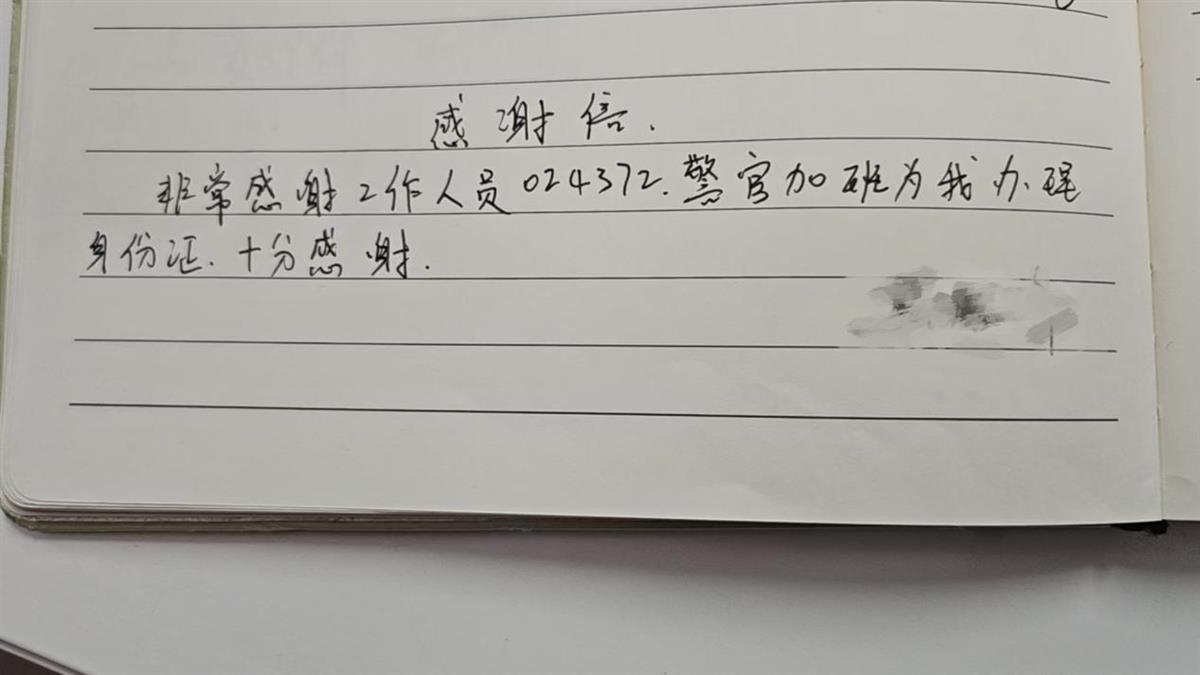 感谢信.
非常感谢工作人员024372.警官加班为我办理
身份证.十分感谢.